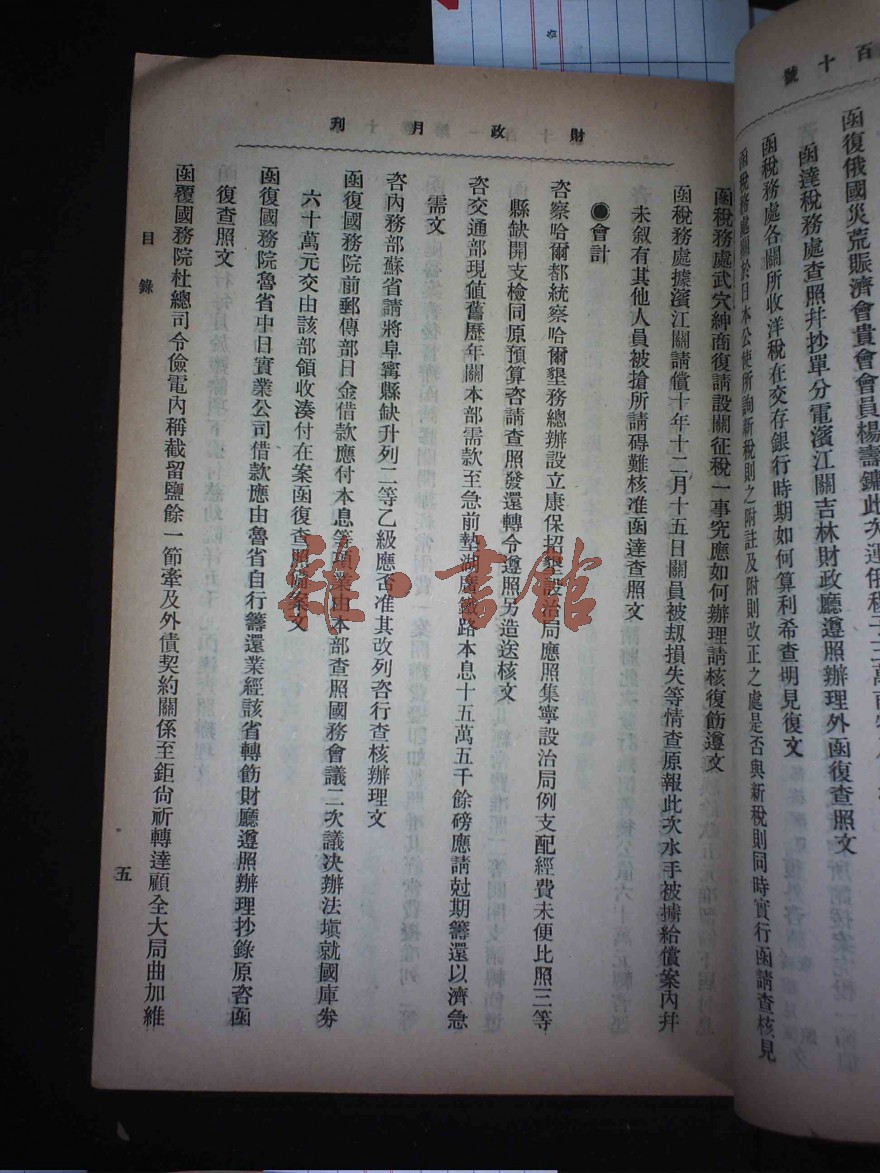 百十號
函復俄國災荒賑濟會貴會會員楊壽
函達稅務處查照并抄單分電濱江關吉林財政廳遵照辦理外函復查照文
函稅務處各關所收洋稅在交存銀行時期如何算利希查明見復文
函稅務處關於日本公使所詢新稅則之附註及附則改正之處是否與新稅則同時實行函請查核見
財政月刊
函稅務處武穴紳商復請設關征稅一事究應如何辦理請核復飭遵文
函稅務處據濱江關請償十年十二月十五日關員被刼損失等情查原報此次水手被擄給償案內幷
未叙有其他人員被搶所請碍難核准函達查照文
●會計
咨察哈爾都統察哈爾墾務總辦設立康保招墾設治局應照集寧設治局例支配經費未便比照三等
縣缺開支檢同原預算咨請查照發還轉令遵照另造送核文
咨交通部現値舊歷年關本部需款至急前墊湖廣鐵路本息十五萬五千餘磅應請尅期籌還以濟急
需文
咨內務部蘇省請將阜寧縣缺升列二等乙級應否准其改列咨行查核辦理文
函復國務院前郵傳部日金借款應付本息等項業由本部查照國務會議二次議决辦法塡就國庫劵
六十萬元交由該部領收湊付在案函復查照備案文
函復國務院魯省中日實業公司借款應由魯省自行籌還業經該省轉飭財廳遵照辦理抄錄原咨函
復查照文
函覆國務院杜總司令儉電內稱截留鹽餘一節牽及外債契約關係至鉅尙祈轉達顧全大局曲加維
目錄
五
雜·書館